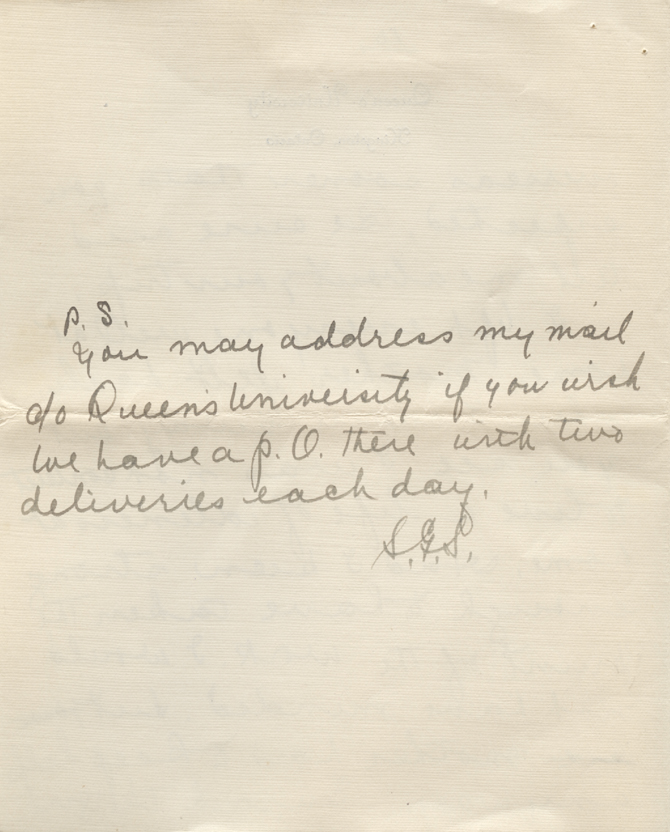 P.S.
You may address my mail
c/o Queen's University if you wish
We have a P.O. there with two
deliveries each day.
S.G.S.